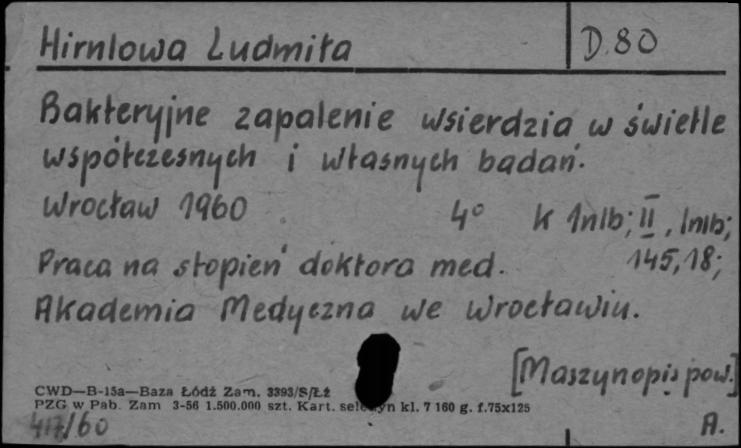 Hirnlowa Ludmiła D.80
Bakteryjne zapalenie wsierdzia w świetle
współczesnych i własnych badań.
Wrocław 1960 4° k 1nlb; II, lnlb;
Praca na stopień doktora med. 145,18;
Akademia Medyczna we Wrocławiu.
[Maszynopis pow.]
CWD—B-15a—Baza Łódź Zam. 3393/S/Łż
PZG w Pab. Zam 3-56 1.500.000 szt. Kart. kl. 7 160 g. f.75x125
417/60 A.